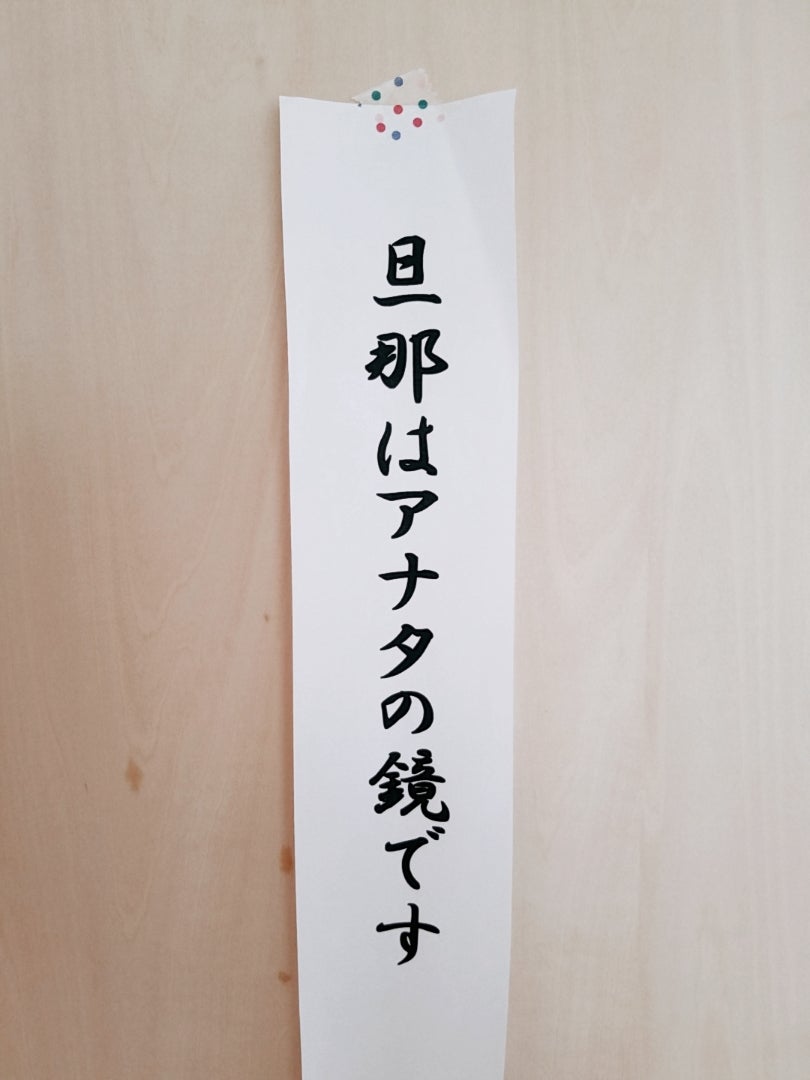 旦那はアナタの鏡です